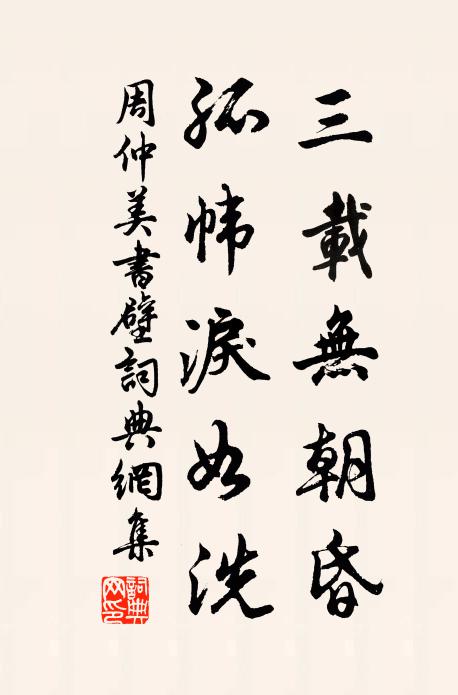 三載無朝昏
孤幃淚如洗
周仲美書壁詞典網集
詞典网印